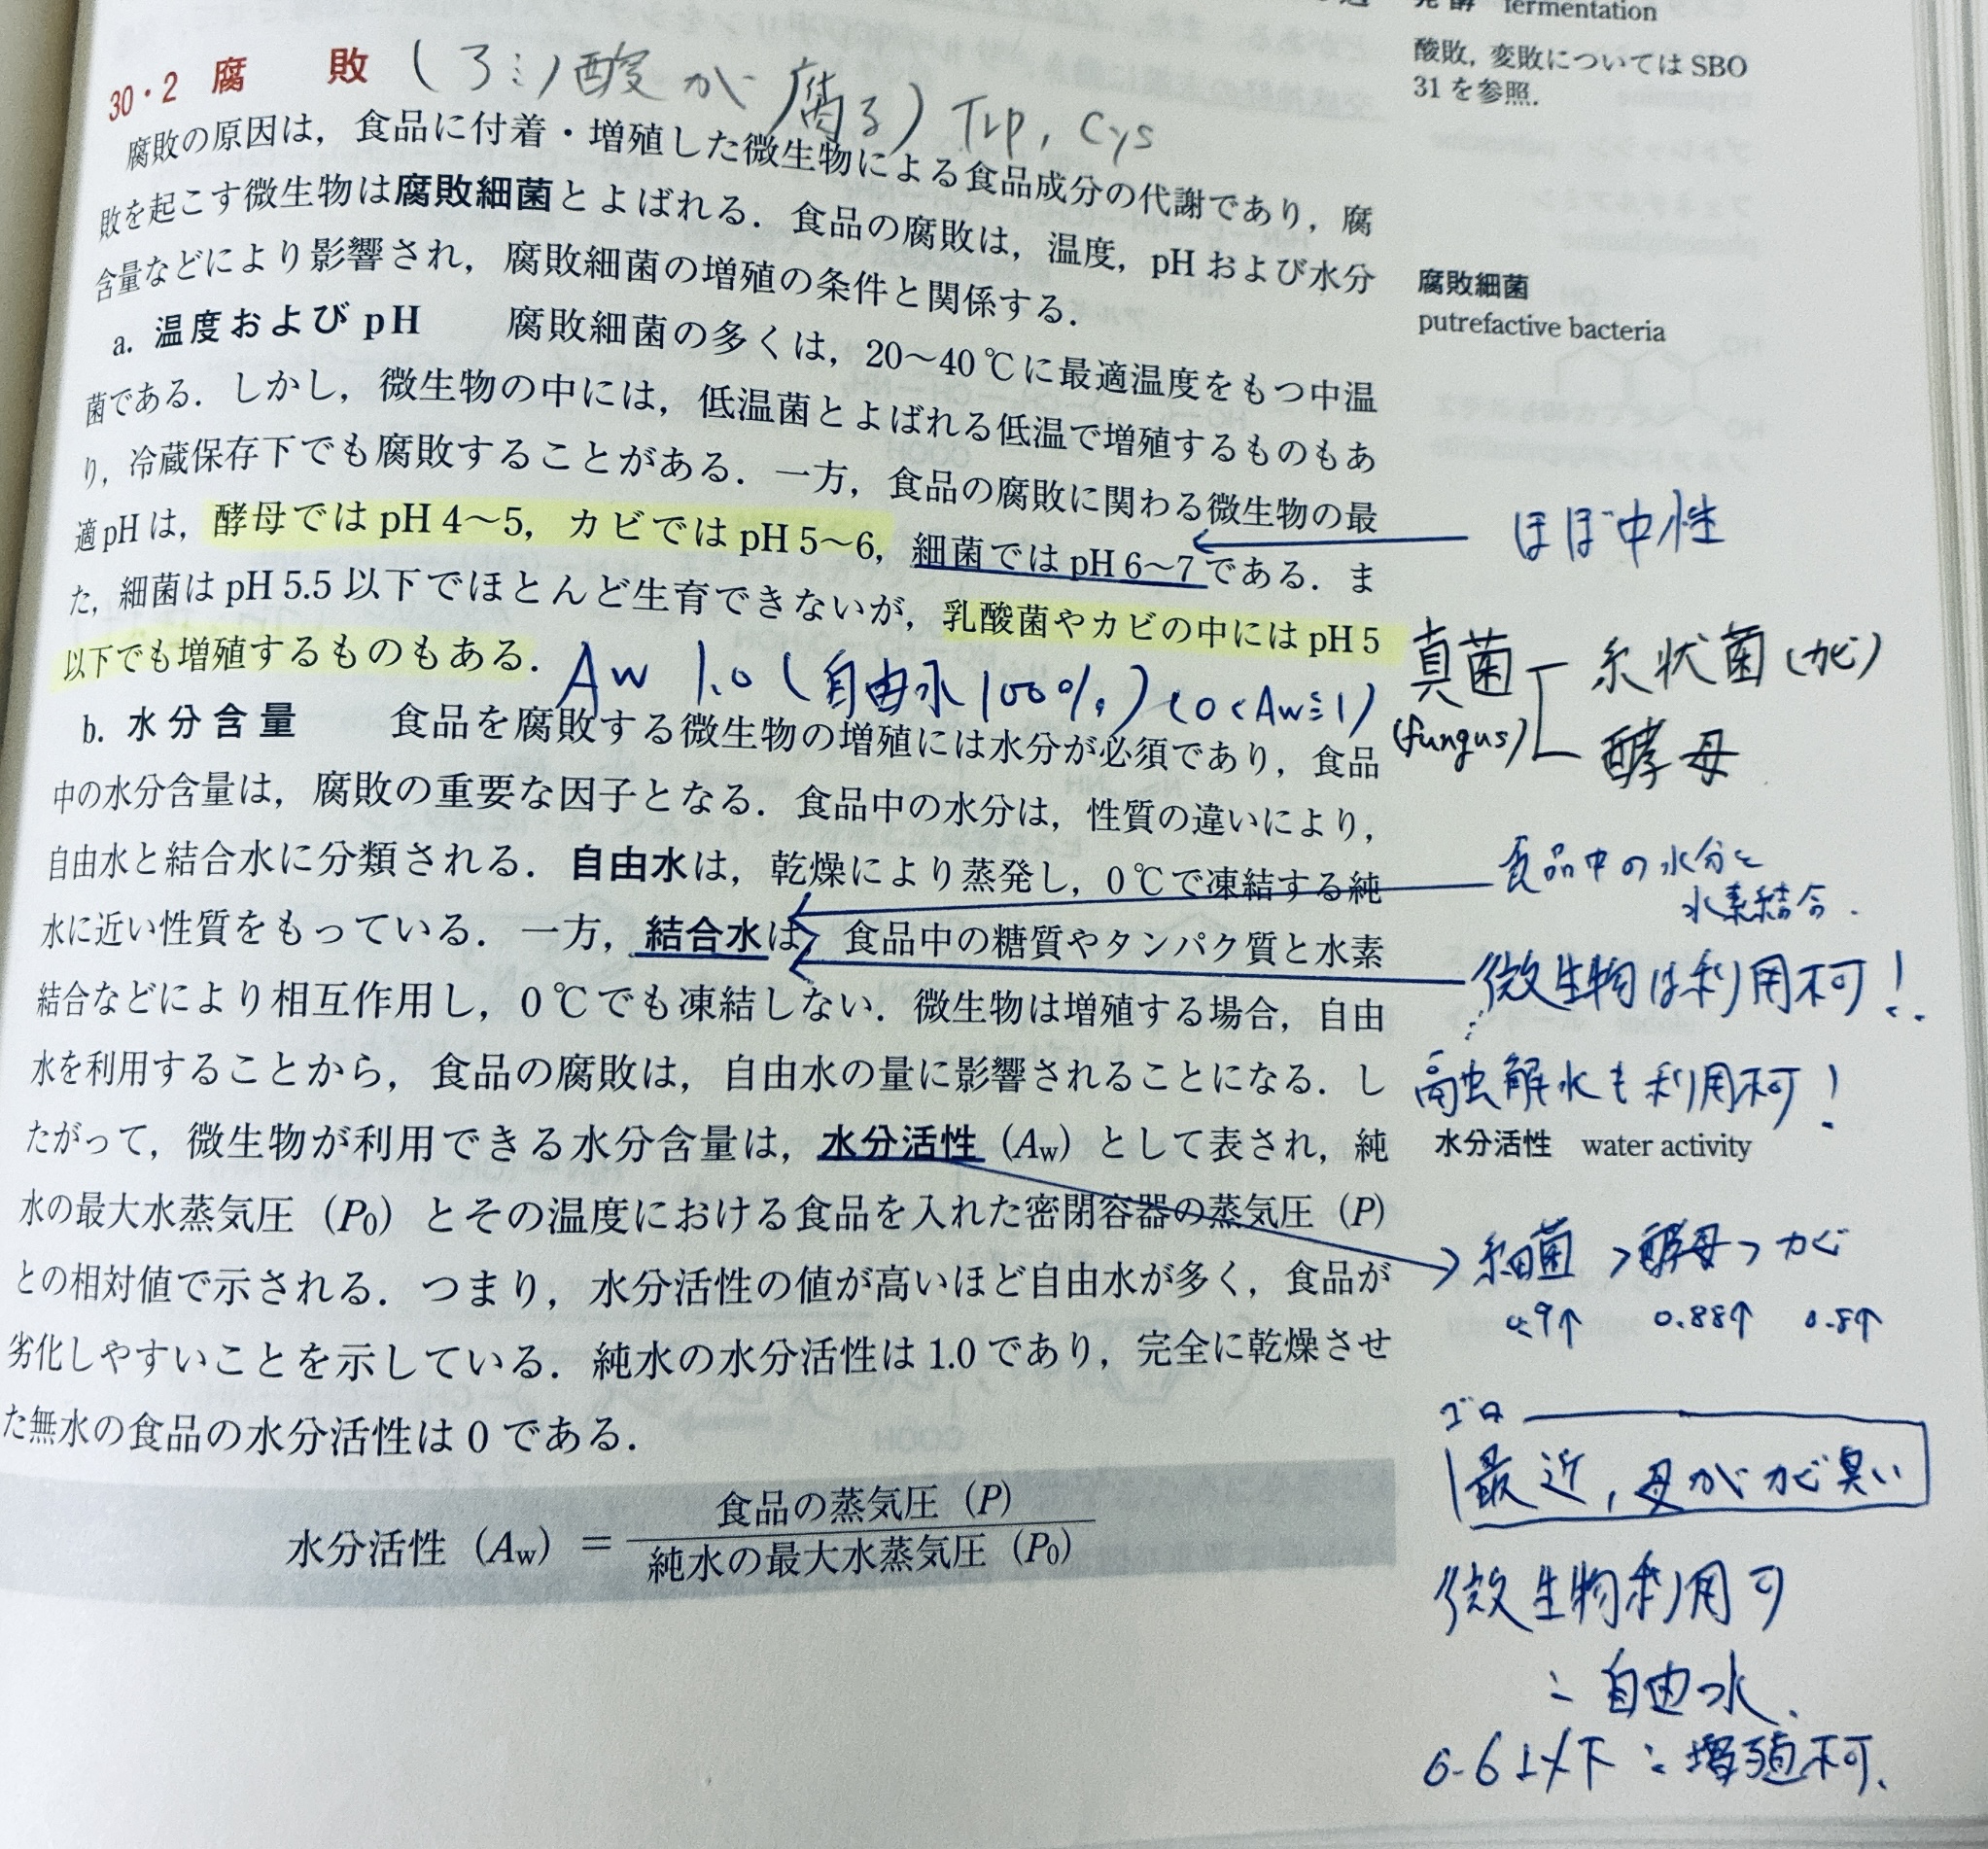 発酵 fermentation
酸敗，変敗については SBO
31 を参照．
30・2 腐 敗 (アミノ酸が腐る) Trp, Cys
腐敗の原因は，食品に付着・増殖した微生物による食品成分の代謝であり，腐
敗を起こす微生物は腐敗細菌とよばれる．食品の腐敗は，温度，pH および水分
含量などにより影響され，腐敗細菌の増殖の条件と関係する．
腐敗細菌
putrefactive bacteria
a. 温度および pH 腐敗細菌の多くは，20〜40 ℃に最適温度をもつ中温
菌である．しかし，微生物の中には，低温菌とよばれる低温で増殖するものもあ
り，冷蔵保存下でも腐敗することがある．一方，食品の腐敗に関わる微生物の最
適 pH は，酵母では pH 4〜5，カビでは pH 5〜6，細菌では pH 6〜7 である．ま
ほぼ中性
た，細菌は pH 5.5 以下でほとんど生育できないが，乳酸菌やカビの中には pH 5
以下でも増殖するものもある．
Aw 1.0 (自由水100%) (0<Aw≦1)
真菌 糸状菌(カビ)
(fungus) 酵母
b. 水分含量 食品を腐敗する微生物の増殖には水分が必須であり，食品
中の水分含量は，腐敗の重要な因子となる．食品中の水分は，性質の違いにより，
自由水と結合水に分類される．自由水は，乾燥により蒸発し，0 ℃で凍結する純
水に近い性質をもっている．一方，結合水は，食品中の糖質やタンパク質と水素
結合などにより相互作用し，0 ℃でも凍結しない．微生物は増殖する場合，自由
水を利用することから，食品の腐敗は，自由水の量に影響されることになる．し
たがって，微生物が利用できる水分含量は，水分活性（Aw）として表され，純
水の最大水蒸気圧（P0）とその温度における食品を入れた密閉容器の蒸気圧（P）
との相対値で示される．つまり，水分活性の値が高いほど自由水が多く，食品が
劣化しやすいことを示している．純水の水分活性は 1.0 であり，完全に乾燥させ
た無水の食品の水分活性は 0 である．
食品中の水分と
水素結合．
微生物は利用不可！
融解水も利用不可！
水分活性 water activity
細菌 > 酵母 > カビ
0.9↑ 0.88↑ 0.8↑
ゴロ
最近，母がカビ臭い
微生物利用可
：自由水．
0.6以下：増殖不可．
水分活性（Aw）＝ 食品の蒸気圧（P）
純水の最大水蒸気圧（P0）